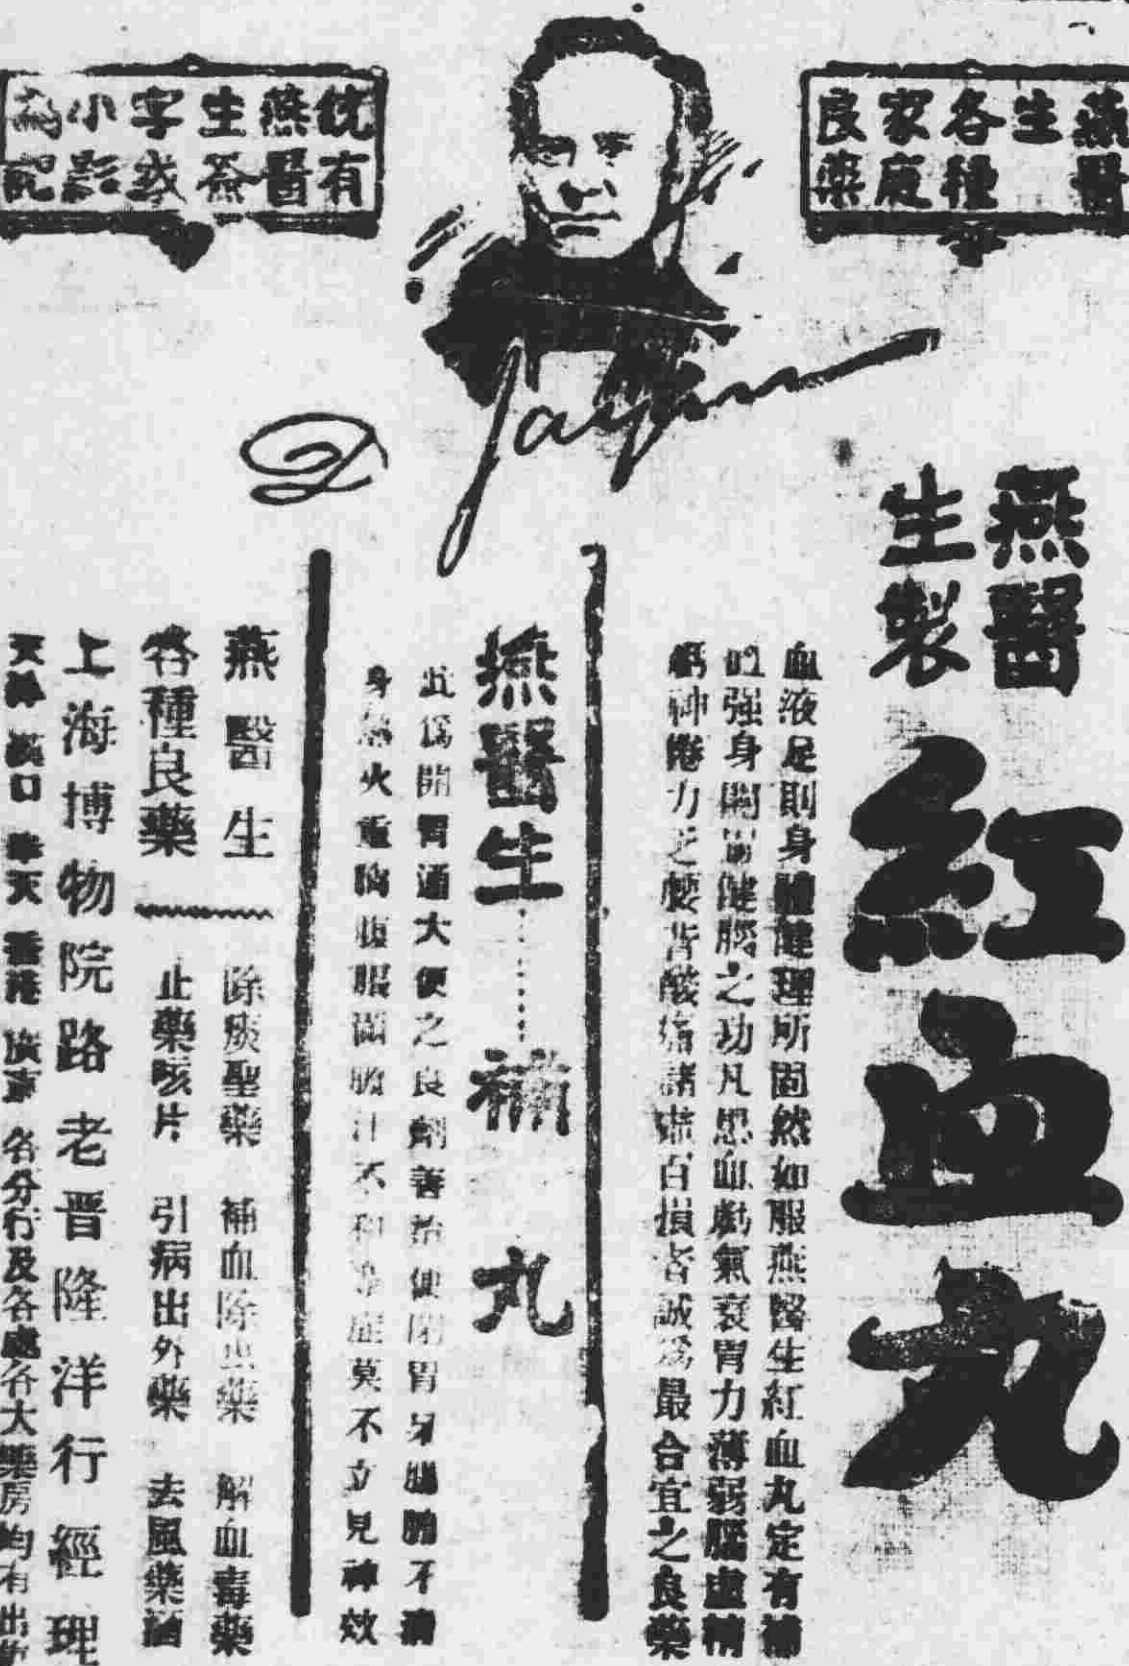 燕醫
生
各種
家庭
良藥
統有
燕醫
生簽
字或
小影
為記
D Jayne
燕醫
生製
紅血丸
血液足則身體健理所固然如服燕醫生紅血丸定有補
血强身開胃健腦之功凡患血虧氣衰胃力薄弱腦虛精
神倦力乏腰背酸痛諸虛百損者誠為最合宜之良藥
燕醫生
補丸
此爲開胃通大便之良劑善治便閉胃呆腸腑不清
身熱火重胸腹脹悶胆汁不和等症莫不立見神效
燕醫生
各種良藥
除痰聖藥 補血除虫藥 解血毒藥
止藥咳片 引病出外藥 去風藥酒
上海博物院路老晋隆洋行經理
天津 漢口 奉天 香港 廣東 各分行及各處各大藥房均有出售